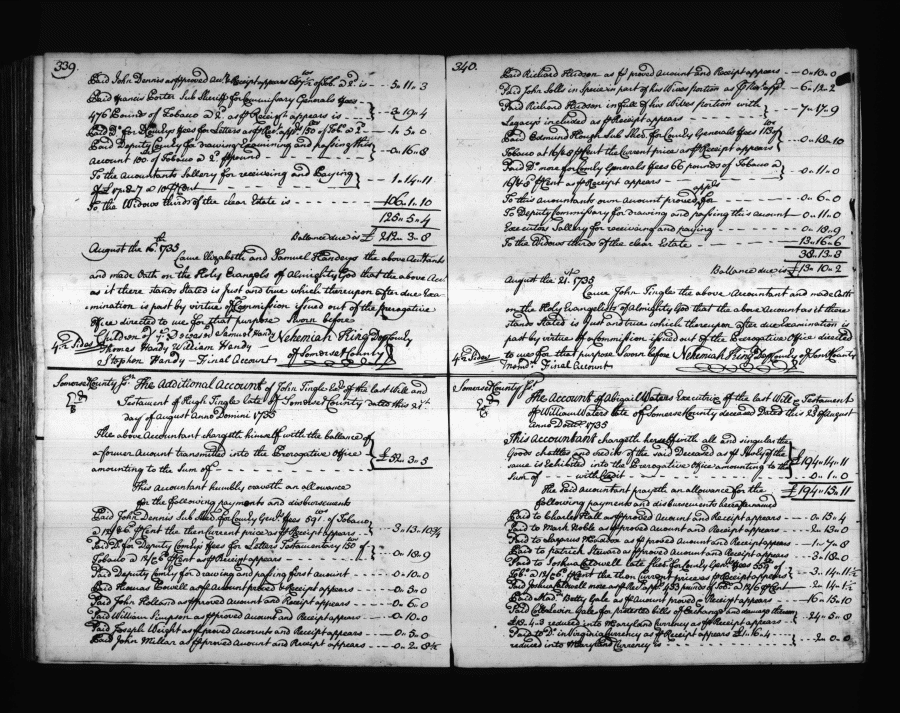 339.
Paid John Dennis as proved Acct. & Receipt appears lbs of Tob. a do. is -- 5 .. 11 .. 3
Paid Francis Porter Sub Sheriff for Commissary Generals Fees
476 Pounds of Tobacco a do. as Receipt appears is -- 3 .. 19 .. 4
Paid Do. for Deputy Comys Fees for Letters as Rec. app. 150 of Tobo. a do. -- 1 .. 5 .. 0
Paid Deputy Comy for drawing Examining and passing this
Account 100 of Tobacco a do. -- 0 .. 16 .. 8
To the Accountants Sallery for receiving and Paying
a 10 Cent -- 1 .. 14 .. 11
To the Widows thirds of the clear Estate is -- 106 .. 1 .. 10
125 .. 5 .. 4
Ballance due is £ 212 .. 3 .. 8
August the 16th 1735
Came Elizabeth and Samuel Handeys the above Acctants
and made Oath on the Holy Evangels of Almighty God that the above Acct.
as it there stands Stated is just and true which thereupon after due Exa-
mination is past by virtue of Commission issued out of the Prerogative
Office directed to me for that purpose Sworn before
Children of ye Deceased Samuel Handy Nehemiah King Dep Comy
Thomas Handy William Handy of Somerset County
Stephen Handy - Final Account
Somerset County Ss. The Additional Account of John Tingle Exr. of the last Will and
Testament of Hugh Tingle late of Somerset County dated this 21st
day of August Anno Domini 1735
The above Accountant chargeth himself with the ballance of
a former Account transmitted into the Prerogative Office
amounting to the Sum of -- £52 .. 3 .. 5
This Accountant humbly craveth an allowance
for the following payments and disbursements
Paid John Dennis Sub Sheriff for Comy Genls. fees 591 lbs of Tobacco
a 12/6 Cent the then Current price as Receipt appears -- 3 .. 13 .. 10¾
Paid Do. for Deputy Comys fees for Letters Testamentary 150 lbs of
Tobacco a 12/6 Cent as Receipt appears -- 0 .. 18 .. 9
Paid Deputy Comy for drawing and passing first Account -- 0 .. 10 .. 0
Paid Thomas Powell as Account proved & Receipt appears -- 0 .. 3 .. 0
Paid John Holland as proved Account and Receipt appears -- 0 .. 6 .. 0
Paid William Simpson as proved Account and Receipt appears -- 0 .. 10 .. 0
Paid Joseph Wright as proved Account and Receipt appears -- 0 .. 5 .. 0
Paid John Millar as proved Account and Receipt appears -- 0 .. 2 .. 8½
340.
Paid Richard Hudson as proved Account and Receipt appears -- 0 .. 10 .. 0
Paid John Solls in Specie in part of his Wives portion as Rec. app. -- 6 .. 12 .. 2
Paid Richard Hudson in full of his Wives portion with
Legacys included as Receipt appears -- 7 .. 17 .. 9
Paid Edmund Hough Sub Sher. for Comy Generals fees 113 lbs of
Tobacco at 16/8 Cent the Current price as Receipt appears -- 0 .. 18 .. 10
Paid Do. more for Comy Generals Fees 66 pounds of Tobacco a
16/8 Cent as Receipt appears -- 0 .. 11 .. 0
To this Accountants own Account proved for -- 0 .. 6 .. 0
To Deputy Commissary for drawing and passing this Account -- 0 .. 11 .. 0
Executors Sallery for receiving and paying -- 0 .. 18 .. 9
To the Widows third of the clear Estate -- 13 .. 16 .. 6
38 .. 13 .. 8
Ballance due is £13 .. 10 .. 2
August the 21st 1735
Came John Tingle the above Accountant and made Oath
on the Holy Evangelists of Almighty God that the above Account as it there
stands Stated is Just and true which thereupon after due Examination is
past by virtue of a Commission issued out of the Prerogative Office directed
to me for that purpose Sworn before Nehemiah King Dep Comy of Somst County
Final Account
Somerset County Ss. The Account of Abigail Waters Executrix of the last Will & Testament
of William Waters late of Somerset County deceased Dated this 23d of August
Anno Domi 1735
This Accountant chargeth herself with all and singular the
Goods chattles and credits of the said Deceased as Invty of the
same is Exhibited into the Prerogative Office amounting to the £194 .. 14 .. 11
Sum of -- with Credit -- 0 .. 1 .. 0
£194 .. 15 .. 11
The said Accountant prayeth an allowance for the
following payments and disbursements hereafter named
Paid to Charles Hall as proved Account and Receipt appears -- 0 .. 15 .. 4
Paid to Mark Noble as proved Account and Receipt appears -- 2 .. 13 .. 0
Paid to Lazarus Maddox as proved Account and Receipt appears -- 1 .. 7 .. 8
Paid to Patrick Steward as proved Account and Receipt appears -- 3 .. 18 .. 0
Paid to Joshua Caldwell late Shef. for Comy Genls. fees 559 of
Tobo. a 12/6 Cent the then Current price as Receipt appears -- 3 .. 14 .. 11½
Paid Joshua Caldwell more as Rect. app. 433 pounds of Tobo. a 12/6 Cent 2 .. 14 .. 1½
Paid Mad. Betty Gale as Account proved & Receipt appears -- 16 .. 15 .. 10
Paid Col. Levin Gale for protested bills of Exchange and damage thereon
£18 .. 4 .. 3 reduced into Maryland Currency as Receipt appears -- 24 .. 5 .. 8
Paid to Do. in Virginia Currency as Receipt appears £1 .. 16 .. 4
reduced into Maryland Currency is -- 2 .. 0 .. 0